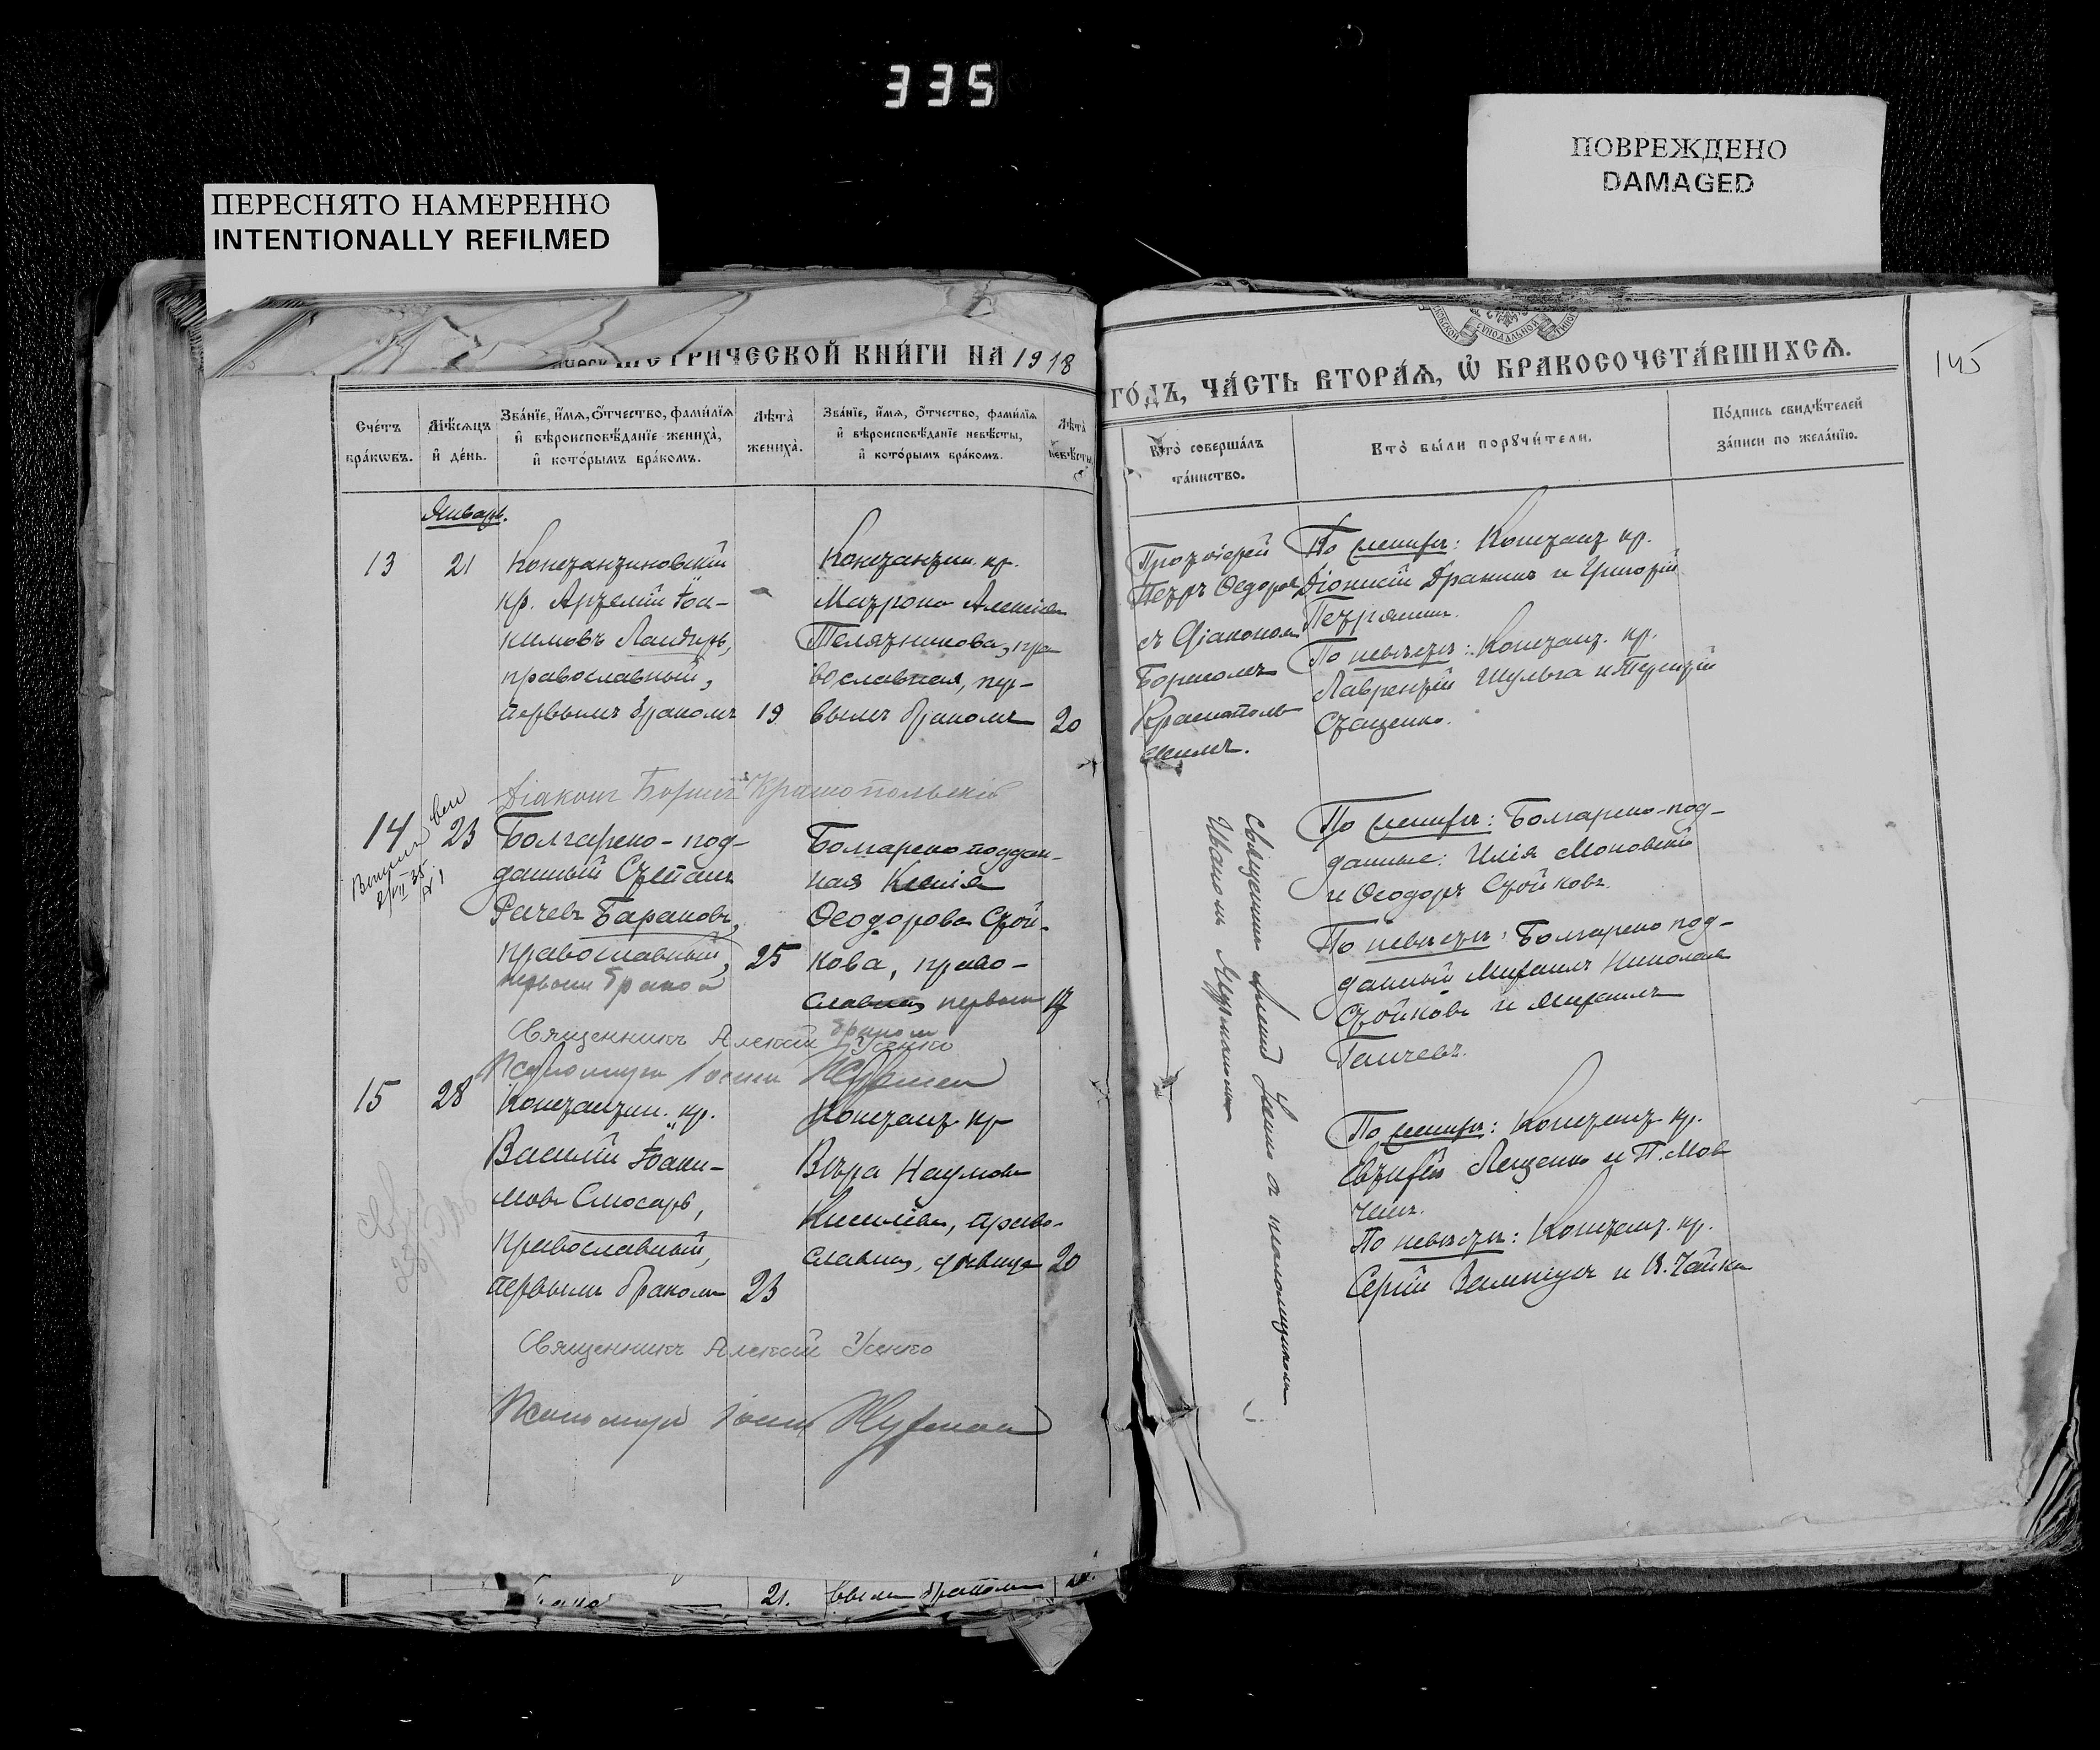 335
ПЕРЕСНЯТО НАМЕРЕННО
INTENTIONALLY REFILMED
ПОВРЕЖДЕНО
DAMAGED
МЕТРИЧЕСКОЙ КНИ́ГИ НА 1918
ГО́ДЪ, ЧА́СТЬ ВТОРА́Ѧ, Ѽ БРАКОСОЧЕТА́ВШИХСѦ.
145
Сче́тъ бра́кѡвъ.
Мѣ́сяцъ и҆ де́нь.
Зва́нїе, и҆́мѧ, ѻ҆́тчество, фами́лїѧ
и҆ вѣроисповѣ́данїе жениха̀,
и҆ кото́рымъ бра́комъ.
Лѣ́та жениха̀.
Зва́нїе, и҆́мѧ, ѻ҆́тчество, фами́лїѧ
и҆ вѣроисповѣ́данїе невѣ́сты,
и҆ кото́рымъ бра́комъ.
Лѣ́та невѣ́сты
Кто̀ соверша́лъ
та́инство.
Кто̀ бы́ли порꙋчи́тели.
По́дпись свидѣ́телей
за́писи по жела́нїю.
Январь.
13
21
Константиновскій
кр. Артемій Іоа-
кимовъ Ландарь,
православный,
первымъ бракомъ
19
Константин. кр.
Матрона Алексіева
Телятникова, пра
вославная, пер-
вымъ бракомъ
20
Протоіерей
Петръ Ѳедоров
съ Діакономъ
Борисомъ
Краснополь
скимъ.
По женихѣ: Констант. кр.
Діонисій Драник и Григорій
По невѣстѣ: Констант. кр.
Лаврентій Шульга и Терентій
Стаценко.
Діаконъ Борисъ Краснопольскій
14
23
Болгарско-под-
данный Стефанъ
Рачевъ Барановъ,
православный,
первым браком
25
Болгарско поддан-
ная Ксенія
Ѳеодорова Стой-
кова, право-
славная первым
браком
17
Священник Алексій Усенко и псаломщикомъ
По женихѣ: Болгарско-под-
данные: Илія Моковскій
и Ѳеодоръ Стойковъ.
По невѣстѣ: Болгарско под-
данный Михаилъ Николаев
Стойковъ и Михаилъ
Ганчевъ.
Священникъ Алексій Усенко
Псаломщик Іоанн
15
28
Константин. кр.
Василій Іоаки-
мовъ Слюсарь,
православный,
первымъ бракомъ
23
Констант. кр
Вѣра Наумова
Киселева, право-
славная, дѣвица
20
По женихѣ: Констант. кр.
Евтихій Лещенко и П. Мов
чан.
По невѣстѣ: Констант. кр.
Сергій и В. Чайка
Священникъ Алексій Усенко
Псаломщик Іоанн
21.
вымъ бракомъ